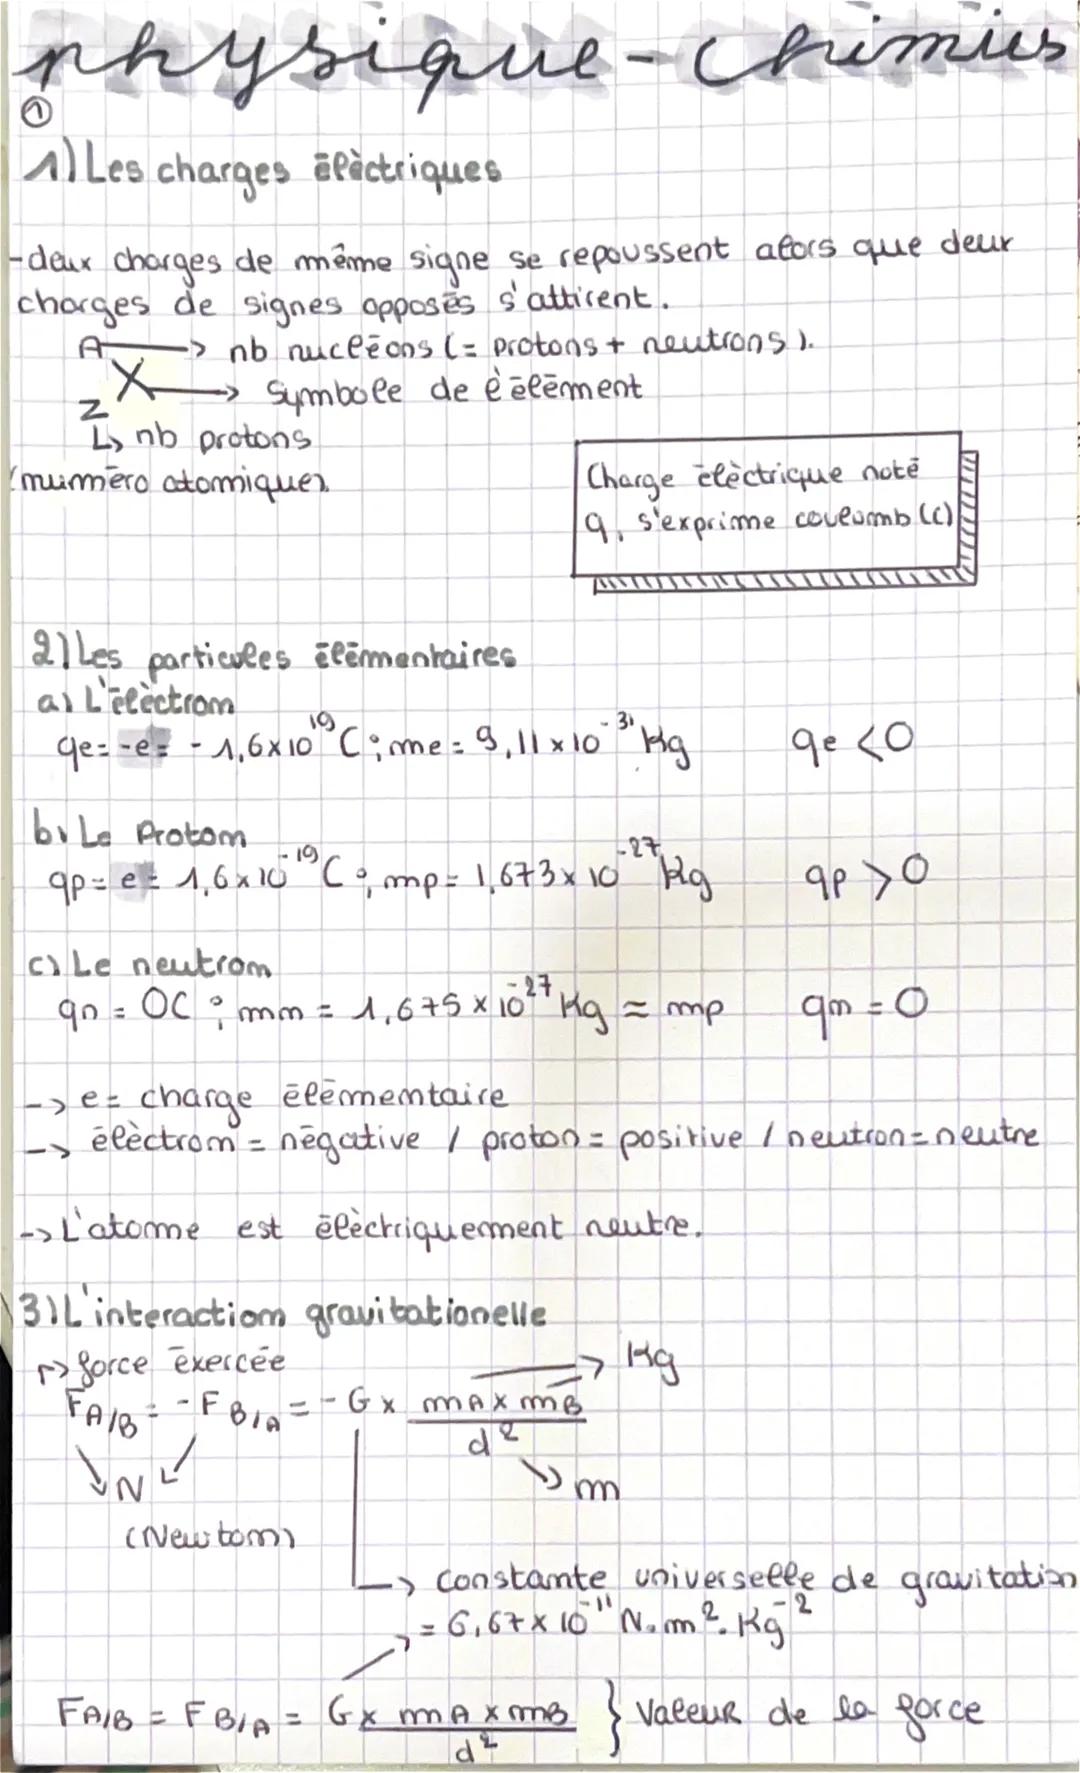 physique-chimies
①
1) Les charges électriques
-deux charges de même signe se repoussent alors que deux
charges de signes opposés s'attirent.
A → nb nucléons (= protons + neutrons).
X → Symbole de l'élément
Z
↳ nb protons
(numéro atomique).
Charge électrique noté
q, s'exprime coulomb (C)
2) Les particules élémentaires
a) L'électron
qe = -e = -1,6×10¹⁹ C ; me = 9,11×10⁻³¹ Kg qe <0
b) Le Proton
qp = e = 1,6×10⁻¹⁹ C ; mp = 1,673×10⁻²⁷ Kg qp >0
c) Le neutron
qn = 0C ; mn = 1,675×10⁻²⁷ Kg ≈ mp qn = 0
-> e = charge élémentaire
-> électron = négative / proton = positive / neutron = neutre
-> L'atome est électriquement neutre.
3) L'interaction gravitationelle
↱ force exercée
→ Kg
FA/B = -FB/A = -G × mA × mB / d²
N
m
(Newton)
→ constante universelle de gravitation
= 6,67×10⁻¹¹ N.m².Kg⁻²
FA/B = FB/A = G × mA × mB / d² } Valeur de la force